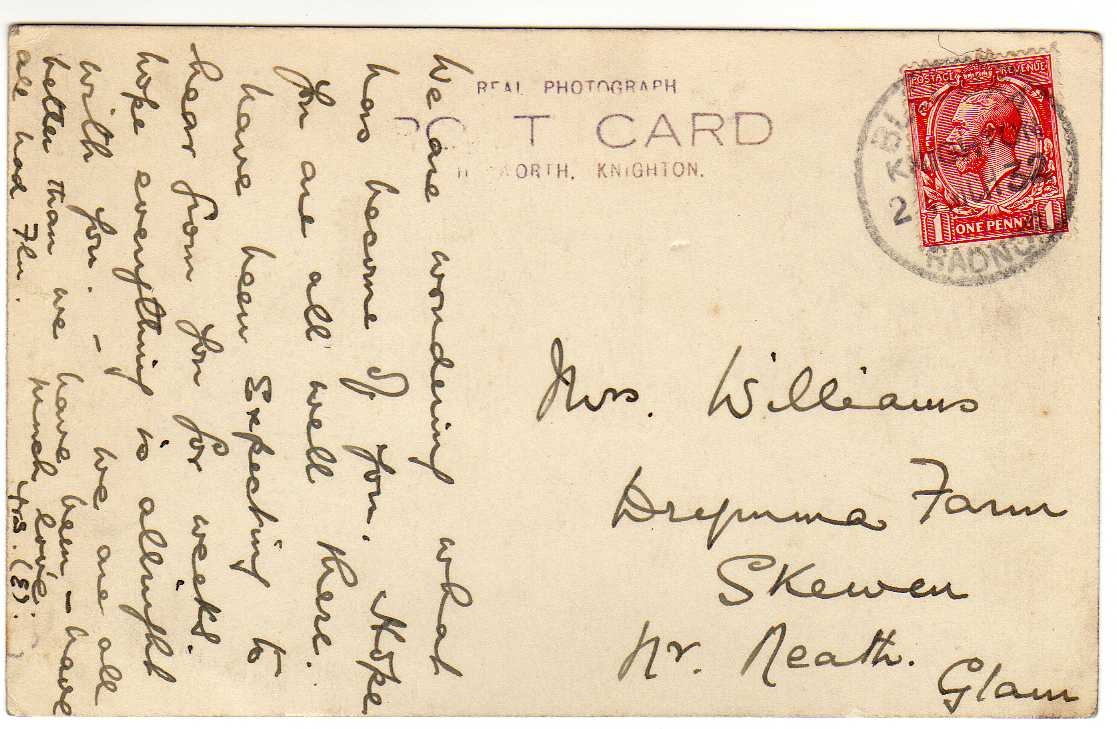 REAL PHOTOGRAPH
POST CARD
KNIGHTON.
POSTAGE REVENUE
1 ONE PENNY 1
32
RADNO
We are wondering what
has become of you. Hope
you are all well there.
have been Expecting to
hear from you for weeks.
hope everything is allright
with you. – we are all
better than we have been – have
all had Flu. much love.
Yrs. (E).
Mrs. Williams
Drymma Farm
Skewen
Nr. Neath.
Glam